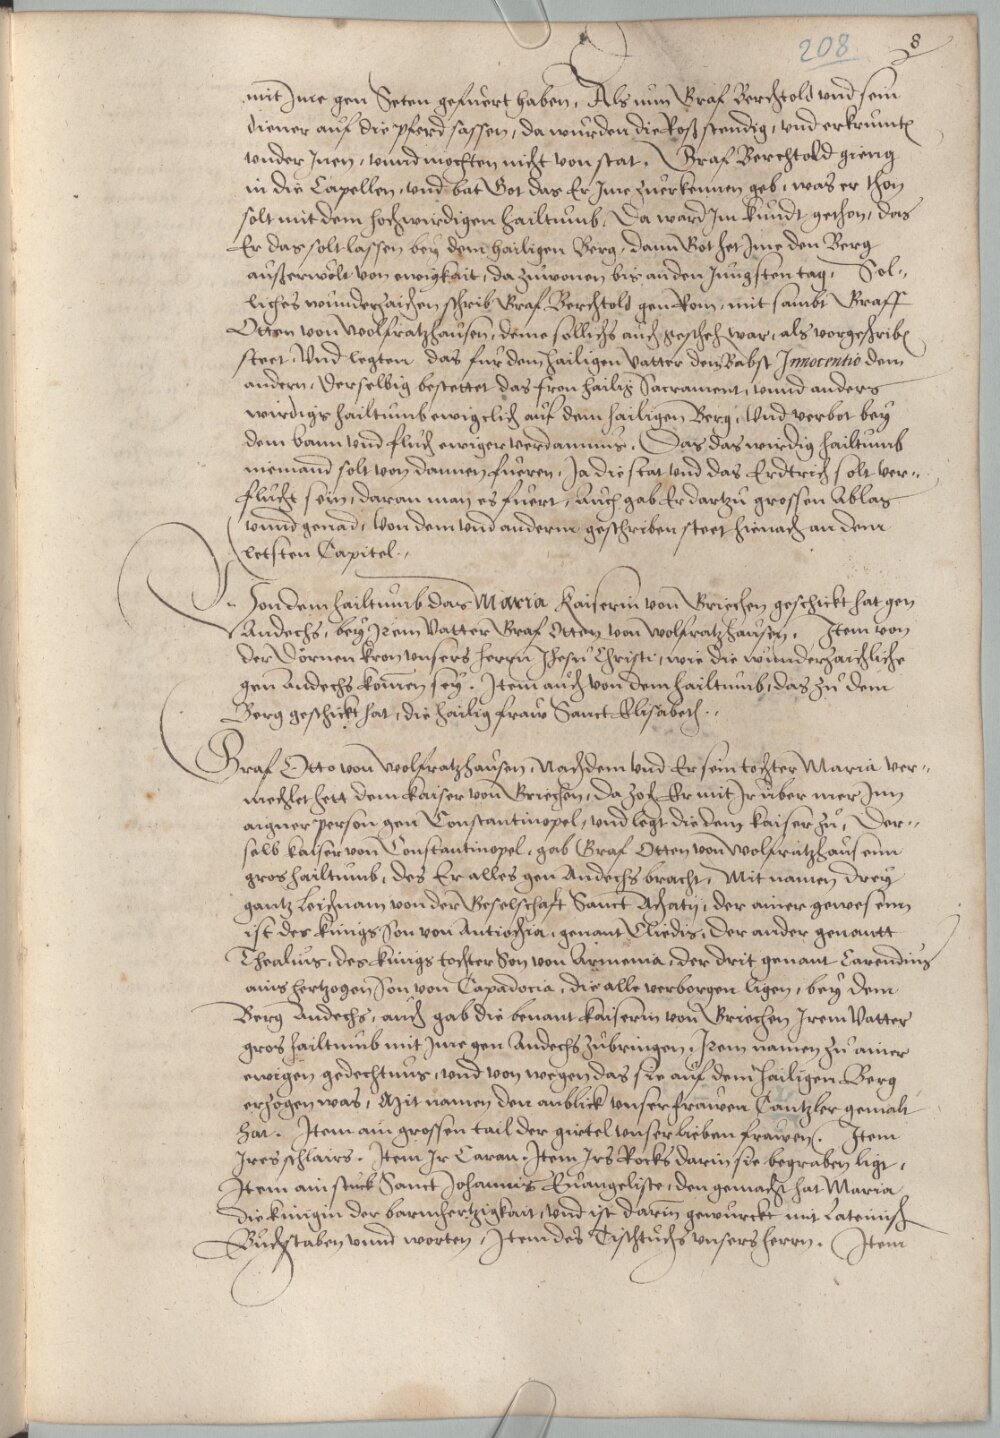 208 8
mit Ime gen Seten gefuert haben, Als nun Graf Berchtold vnd sein
diener auf die pferd sassen, da wurden die Roß stendig, vnd erkrumbt
vnder Inen, vnnd mochten nicht von stat. Graf Berchtold gieng
in die Capellen, vnd bat Got das Er Ime zuerkennen geb, was er thon
solt mit dem hochwirdigen hailtumb. Da ward Im kundt gethon, das
Er das solt lassen bey dem hailigen Berg, dann Got het Ime den Berg
außerwölt von ewigkait, da zuwonen bis an den Jungsten tag. Sol-
liches wunderzaichen schrib Graf Berchtold gen Rom, mit sambt Graff
Otten von Wolfratzhausen, deme sollichs auch gescheh war, als vorgeschriben
steet. Vnd legten das fur dem hailigen vatter dem Babst Innocentio dem
andern, Derselbig bestettet das fron hailig Sacrament, vnnd anders
wirdigs hailtumb ewigclich auf dem hailigen Berg, Vnd verbot bey
dem bann vnd fluch ewiger verdamnus. Das das wirdig hailtumb
niemand solt von dannen fueren, Ja die stat vnd das Erdtrich solt ver-
flucht sein, daran man es fuert, Auch gab Er dartzu grossen Ablas
vnnd genad, Von dem vnd anderm geschriben steet hienach an dem
letsten Capitel.
Von dem hailtumb das Maria Kaiserin von Griechen geschickt hat gen
Andechs, bey Irem Vatter Graf Otten von Wolfratzhausen. Item von
der Dörnen kron vnsers herrn Jhesu Christi, wie die wunderzaichliche
gen Andechs komen sey. Item auch von dem hailtumb, das zu dem
Berg geschickt hat, die hailig fraw Sanct Elisabeth.
Graf Otto von Wolfratzhausen, Nachdem vnd Er sein tochter Maria ver-
mechlet hett dem Kaiser von Griechen, da zoch Er mit Ir uber mer Inn
aigner person gen Constantinopel, vnd legt die dem Kaiser zu, Der-
selb Kaiser von Constantinopel, gab Graf Otten von Wolfratzhausenn
gros hailtumb, des Er alles gen Andechs bracht, Mit namen Drey
gantz Leichnam von der Geselschaft Sanct Achatij, der ainer gewesenn
ist des kunigs Son von Antiochia, genant Eliedis, Der ander genantt
Thealius, des kunigs tochter Son von Armenia, der drit genant Carendius
ains hertzogen Son von Capadocia, die alle verborgen ligen, bey dem
Berg Andechs, auch gab die benant Kaiserin von Griechen Irem Vatter
gros hailtumb mit Ime gen Andechs zubringen, Irem namen zu ainer
ewigen gedechtnus, vnd von wegen das sie auf dem hailigen Berg
erzogen was, Mit namen den anblick vnser frawen Cantzler gemalt
hat. Item ain grossen tail der girtel vnser lieben frawen. Item
Ires schlairs. Item Ir Caran. Item Irs Rocks darin sie begraben ligt,
Item ain stuck Sanct Johannis Euangeliste, den gemacht hat Maria
die kunigin der barmhertzigkait, vnd ist darin gewurckt mit Lateinisch
Buchstaben vnnd worten, Item des Tischtuchs vnsers herrn. Item